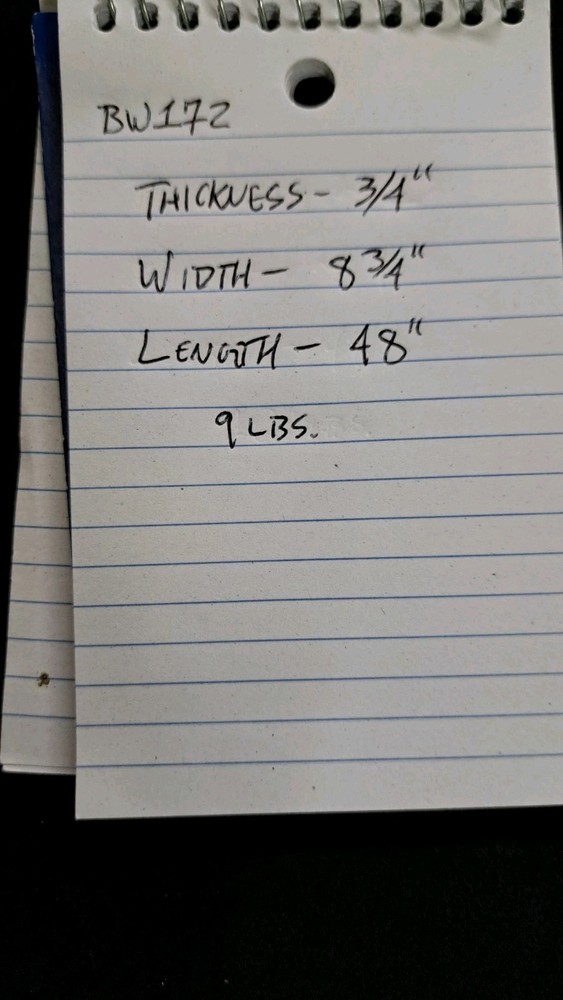 BW172
THICKNESS - 3/4"
WIDTH - 8 3/4"
LENGTH - 48"
9 LBS.